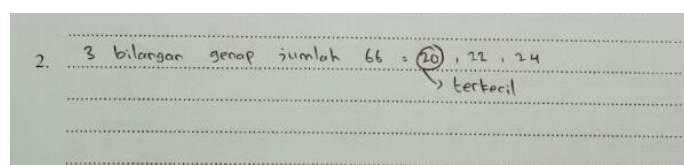 2. 3 bilangan genap jumlah 66 = 20, 22, 24
terkecil